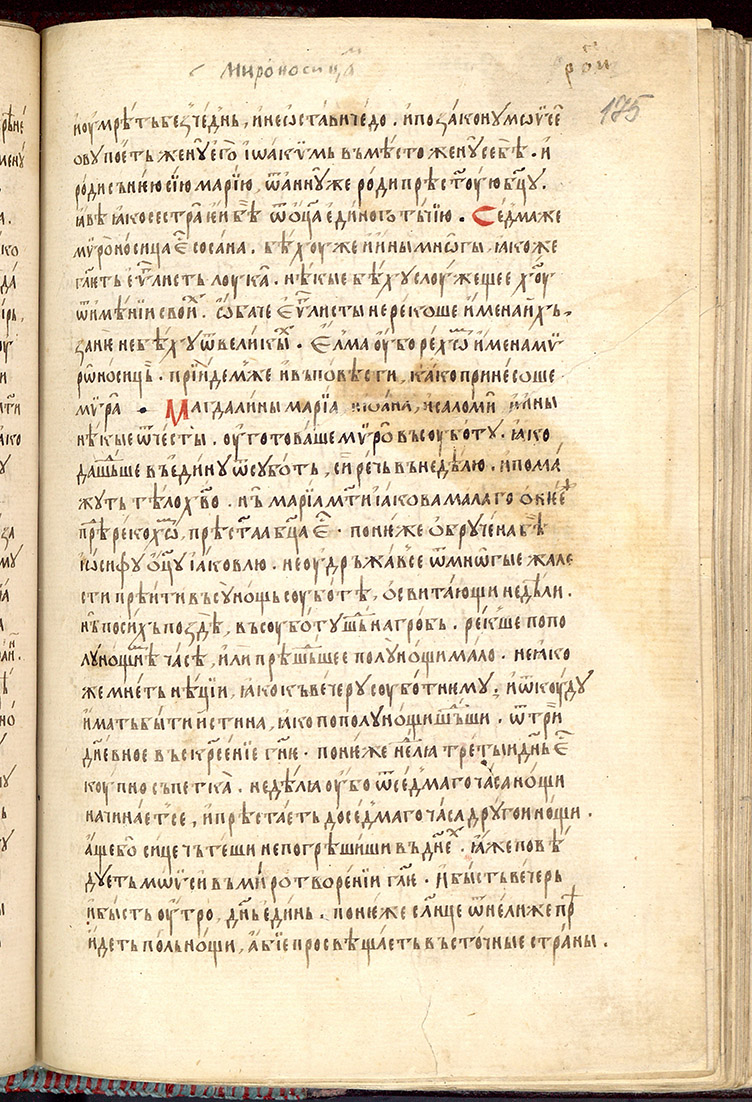 мѷроносицам
рои
175
и оумрѣть безчеднь, и не ѡстави чедо. и по закону мѡѵсе
ову поеть женꙋ его іѡакимь въмѣсто женꙋ себѣ. и
роди сь нѥю сїю марїю, ѿ анныже роди прѣстꙋю бцꙋ.
ꙗвѣ ꙗко сестра ѥи бѣ ѿ ѡца единого тъчїю. Седмаже
мѵроносица ѥ сосана. бѣхоуже и ины мнѡгы, ꙗкоже
глеть еѵлисть лоука. нѣкые бѣху слоужещее хоу
ѿ имѣнїи свои. ѡбаче еѵлисты не рекоше имена ихь.
зане не бѣху ѿ великы. Елма оубо рехѡ имена мѵ
рѡносиць. прїидемже и въ повѣсти, како принесоше
мѵра. Магдалины марїа, и ѡана, и саломи и ины
нѣкые ѿ чести. оуготоваше мѵро въ соуботу. ꙗко
дашьше въ едину ѿ суботь, сирѣчь въ недѣлю. и пома
жуть тѣло хво. нь марїа мти ꙗкова малаго ѡ нѥи
прѣрекохѡ, прѣстаа бца ѥ. понѥже обручена бѣ
иѡсифу ѡцу ꙗковлю. не оудръжавсе ѿ мнѡгые жале
сти прѣити въ сꙋю нощь соуботѣ, освитающи недѣли.
нь по сихь поздѣ, въ соуботу шьь на гробь. рекше по по
луношнѣ часѣ, или прѣшьшее полунощи мало. не ꙗко
же мнеть нѣцїи, ꙗко къ вечеру соуботнему. и ѿкоуду
имать быти истина, ꙗко по полунощи шьши. ѿ три
дневное въскрсенїе гне. понѥже нелꙗ третыи днь ѥ
коупно съ петка. недѣлꙗ оубо ѿ седмаго часа нощи
начинаетсе, и прѣстаеть до седмаго часа другои нощи.
аще бо сице чьтеши не погрѣшиши въ дне. ꙗже повѣ
дуеть мѡѵси въ миротворенїи гле. и бысть вечерь
и бысть оутро, днь единь. понѥже слнце ѿнелиже прѣ
идеть польнощи, абїе просвѣщаеть въсточные страны.